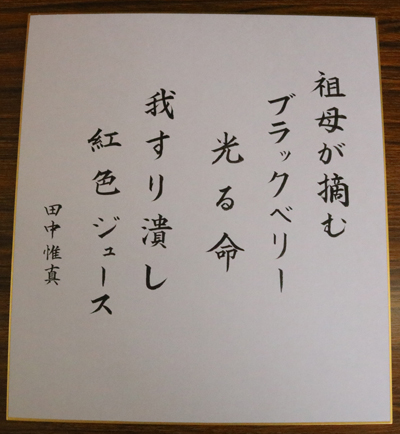 祖母が摘む
ブラックベリー
光る命
我すり潰し
紅色ジュース
田中惟真